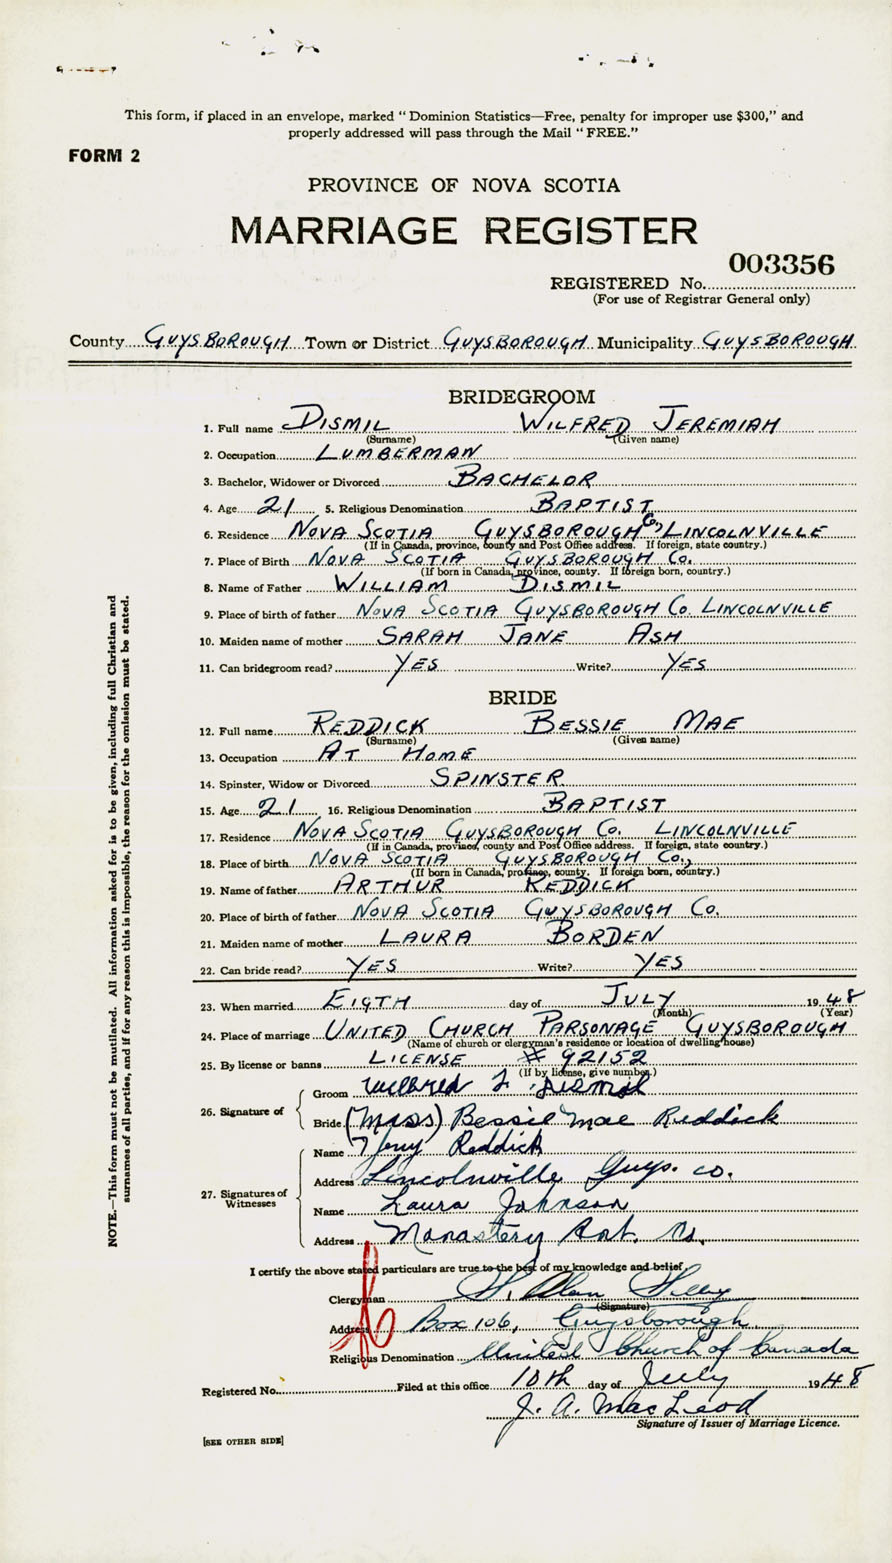 This form, if placed in an envelope, marked "Dominion Statistics—Free, penalty for improper use $300," and
properly addressed will pass through the Mail "FREE."
FORM 2
PROVINCE OF NOVA SCOTIA
MARRIAGE REGISTER
REGISTERED No. 003356
(For use of Registrar General only)
County GUYSBOROUGH Town or District GUYSBOROUGH Municipality GUYSBOROUGH
BRIDEGROOM
1. Full name DISMIL WILFRED JEREMIAH
(Surname) (Given name)
2. Occupation LUMBERMAN
3. Bachelor, Widower or Divorced BACHELOR
4. Age 21 5. Religious Denomination BAPTIST
6. Residence NOVA SCOTIA GUYSBOROUGH Co, LINCOLNVILLE
(If in Canada, province, county and Post Office address. If foreign, state country.)
7. Place of Birth NOVA SCOTIA GUYSBOROUGH Co.
(If born in Canada, province, county. If foreign born, country.)
8. Name of Father WILLIAM DISMIL
9. Place of birth of father NOVA SCOTIA GUYSBOROUGH Co LINCOLNVILLE
10. Maiden name of mother SARAH JANE ASH
11. Can bridegroom read? YES Write? YES
BRIDE
12. Full name REDDICK BESSIE MAE
(Surname) (Given name)
13. Occupation AT HOME
14. Spinster, Widow or Divorced SPINSTER
15. Age 21 16. Religious Denomination BAPTIST
17. Residence NOVA SCOTIA GUYSBOROUGH Co. LINCOLNVILLE
(If in Canada, province, county and Post Office address. If foreign, state country.)
18. Place of birth NOVA SCOTIA GUYSBOROUGH Co.,
(If born in Canada, province, county. If foreign born, country.)
19. Name of father ARTHUR REDDICK
20. Place of birth of father NOVA SCOTIA GUYSBOROUGH Co.
21. Maiden name of mother LAURA BORDEN
22. Can bride read? YES Write? YES
23. When married EIGTH day of JULY 1948
(Month) (Year)
24. Place of marriage UNITED CHURCH PARSONAGE GUYSBOROUGH
(Name of church or clergyman's residence or location of dwelling house)
25. By license or banns LICENSE # 92152
(If by license, give number.)
26. Signature of
Groom Wilfred J. Dismol
Bride (Miss) Bessie Mae Reddick
27. Signatures of Witnesses
Name Reddick
Address Lincolnville Guys. Co.
Name Laura Johnson
Address Monastery Ant. Co.
I certify the above stated particulars are true to the best of my knowledge and belief.
Clergyman H. Alan
(Signature)
Address Box 106, Guysborough
Religious Denomination United Church of Canada
Registered No. Filed at this office 10th day of July 1948
J. A. MacLeod
Signature of Issuer of Marriage Licence.
[SEE OTHER SIDE]
NOTE.—This form must not be mutilated. All information asked for is to be given, including full Christian and
surnames of all parties, and if for any reason this is impossible, the reason for the omission must be stated.